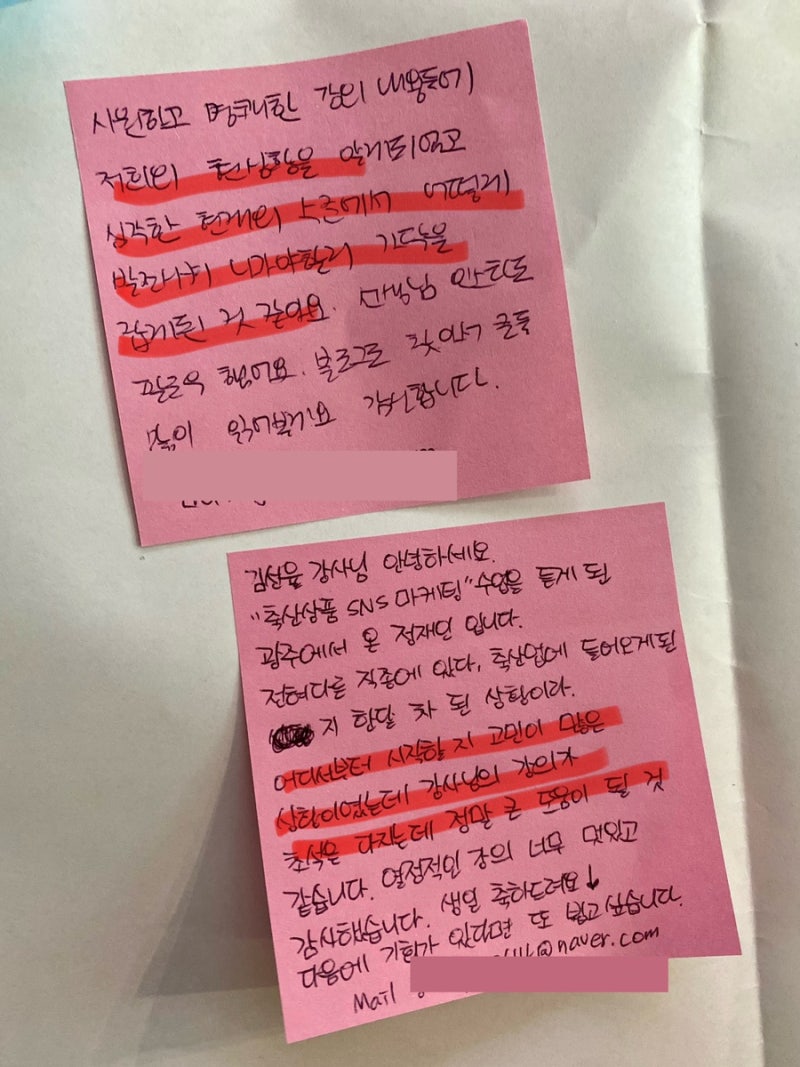 시원하고 명쾌한 강의 내용들에
저희의 현상황을 알게되었고
심각한 현재의 수준에서 어떻게
발전시켜 나가야할지 가닥을
잡게된 것 같아요. 선생님 인스타도
팔로우 했어요. 블로그도 찾아가 글들
많이 읽어볼게요 감사합니다.
김선율 강사님 안녕하세요.
"축산상품 SNS 마케팅" 수업을 듣게 된
광주에서 온 정재인 입니다.
전혀다른 직종에 있다, 축산업에 들어오게된
지 한달 차 된 상황이라.
어디서부터 시작할 지 고민이 많은
상황이였는데 강사님의 강의가
초석을 다지는데 정말 큰 도움이 될 것
같습니다. 열정적인 강의 너무 멋있고
감사했습니다. 생일 축하드려요↓
다음에 기회가 있다면 또 뵙고싶습니다.
Mail @naver.com